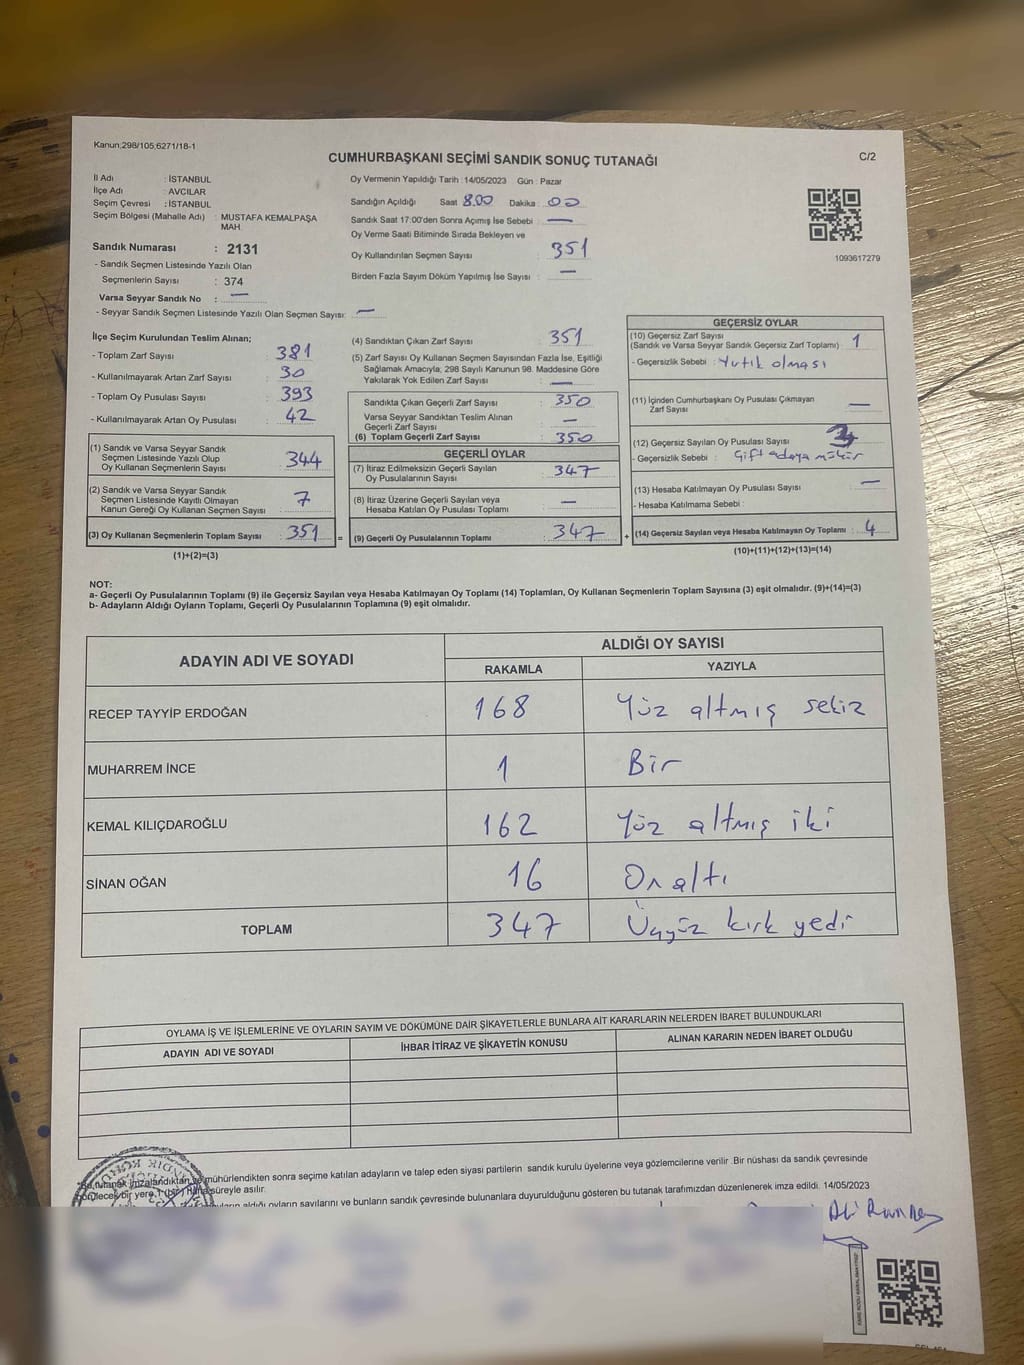 Kanun,298/105,6271/18-1
CUMHURBAŞKANI SEÇİMİ SANDIK SONUÇ TUTANAĞI
C/2
İl Adı : İSTANBUL
İlçe Adı : AVCILAR
Seçim Çevresi : İSTANBUL
Seçim Bölgesi (Mahalle Adı) : MUSTAFA KEMALPAŞA
MAH.
Sandık Numarası : 2131
- Sandık Seçmen Listesinde Yazılı Olan
Seçmenlerin Sayısı : 374
Varsa Seyyar Sandık No : —
- Seyyar Sandık Seçmen Listesinde Yazılı Olan Seçmen Sayısı: —
Oy Vermenin Yapıldığı Tarih : 14/05/2023 Gün : Pazar
Sandığın Açıldığı Saat 8.00 Dakika : 00
Sandık Saat 17:00'den Sonra Açımış İse Sebebi : —
Oy Verme Saati Bitiminde Sırada Bekleyen ve
Oy Kullandırılan Seçmen Sayısı : 351
Birden Fazla Sayım Döküm Yapılmış İse Sayısı : —
1093617279
İlçe Seçim Kurulundan Teslim Alınan;
- Toplam Zarf Sayısı : 381
- Kullanılmayarak Artan Zarf Sayısı : 30
- Toplam Oy Pusulası Sayısı : 393
- Kullanılmayarak Artan Oy Pusulası : 42
(1) Sandık ve Varsa Seyyar Sandık
Seçmen Listesinde Yazılı Olup
Oy Kullanan Seçmenlerin Sayısı : 344
(2) Sandık ve Varsa Seyyar Sandık
Seçmen Listesinde Kayıtlı Olmayan
Kanun Gereği Oy Kullanan Seçmen Sayısı : 7
(3) Oy Kullanan Seçmenlerin Toplam Sayısı : 351 =
(1)+(2)=(3)
(4) Sandıktan Çıkan Zarf Sayısı : 351
(5) Zarf Sayısı Oy Kullanan Seçmen Sayısından Fazla İse, Eşitliği
Sağlamak Amacıyla, 298 Sayılı Kanunun 98. Maddesine Göre
Yakılarak Yok Edilen Zarf Sayısı : —
Sandıkta Çıkan Geçerli Zarf Sayısı : 350
Varsa Seyyar Sandıktan Teslim Alınan
Geçerli Zarf Sayısı : —
(6) Toplam Geçerli Zarf Sayısı : 350
GEÇERLİ OYLAR
(7) İtiraz Edilmeksizin Geçerli Sayılan
Oy Pusulalarının Sayısı : 347
(8) İtiraz Üzerine Geçerli Sayılan veya
Hesaba Katılan Oy Pusulası Toplamı : —
(9) Geçerli Oy Pusulalarının Toplamı : 347 +
GEÇERSİZ OYLAR
(10) Geçersiz Zarf Sayısı
(Sandık ve Varsa Seyyar Sandık Geçersiz Zarf Toplamı) : 1
- Geçersizlik Sebebi : Yırtık olması
(11) İçinden Cumhurbaşkanı Oy Pusulası Çıkmayan
Zarf Sayısı : —
(12) Geçersiz Sayılan Oy Pusulası Sayısı : 3
- Geçersizlik Sebebi : Çift adaya mühür
(13) Hesaba Katılmayan Oy Pusulası Sayısı : —
- Hesaba Katılmama Sebebi :
(14) Geçersiz Sayılan veya Hesaba Katılmayan Oy Toplamı : 4
(10)+(11)+(12)+(13)=(14)
NOT:
a- Geçerli Oy Pusulalarının Toplamı (9) ile Geçersiz Sayılan veya Hesaba Katılmayan Oy Toplamı (14) Toplamları, Oy Kullanan Seçmenlerin Toplam Sayısına (3) eşit olmalıdır. (9)+(14)=(3)
b- Adayların Aldığı Oyların Toplamı, Geçerli Oy Pusulalarının Toplamına (9) eşit olmalıdır.
ADAYIN ADI VE SOYADI ALDIĞI OY SAYISI
RAKAMLA YAZIYLA
RECEP TAYYİP ERDOĞAN 168 Yüz altmış sekiz
MUHARREM İNCE 1 Bir
KEMAL KILIÇDAROĞLU 162 Yüz altmış iki
SİNAN OĞAN 16 On altı
TOPLAM 347 Üçyüz kırk yedi
OYLAMA İŞ VE İŞLEMLERİNE VE OYLARIN SAYIM VE DÖKÜMÜNE DAİR ŞİKAYETLERLE BUNLARA AİT KARARLARIN NELERDEN İBARET BULUNDUKLARI
ADAYIN ADI VE SOYADI İHBAR İTİRAZ VE ŞİKAYETİN KONUSU ALINAN KARARIN NEDEN İBARET OLDUĞU
mühürlendikten sonra seçime katılan adayların ve talep eden siyasi partilerin sandık kurulu üyelerine veya gözlemcilerine verilir .Bir nüshası da sandık çevresinde
süreyle asılır.
aldığı oyların sayılarını ve bunların sandık çevresinde bulunanlara duyurulduğunu gösteren bu tutanak tarafımızdan düzenlerek imza edildi. 14/05/2023